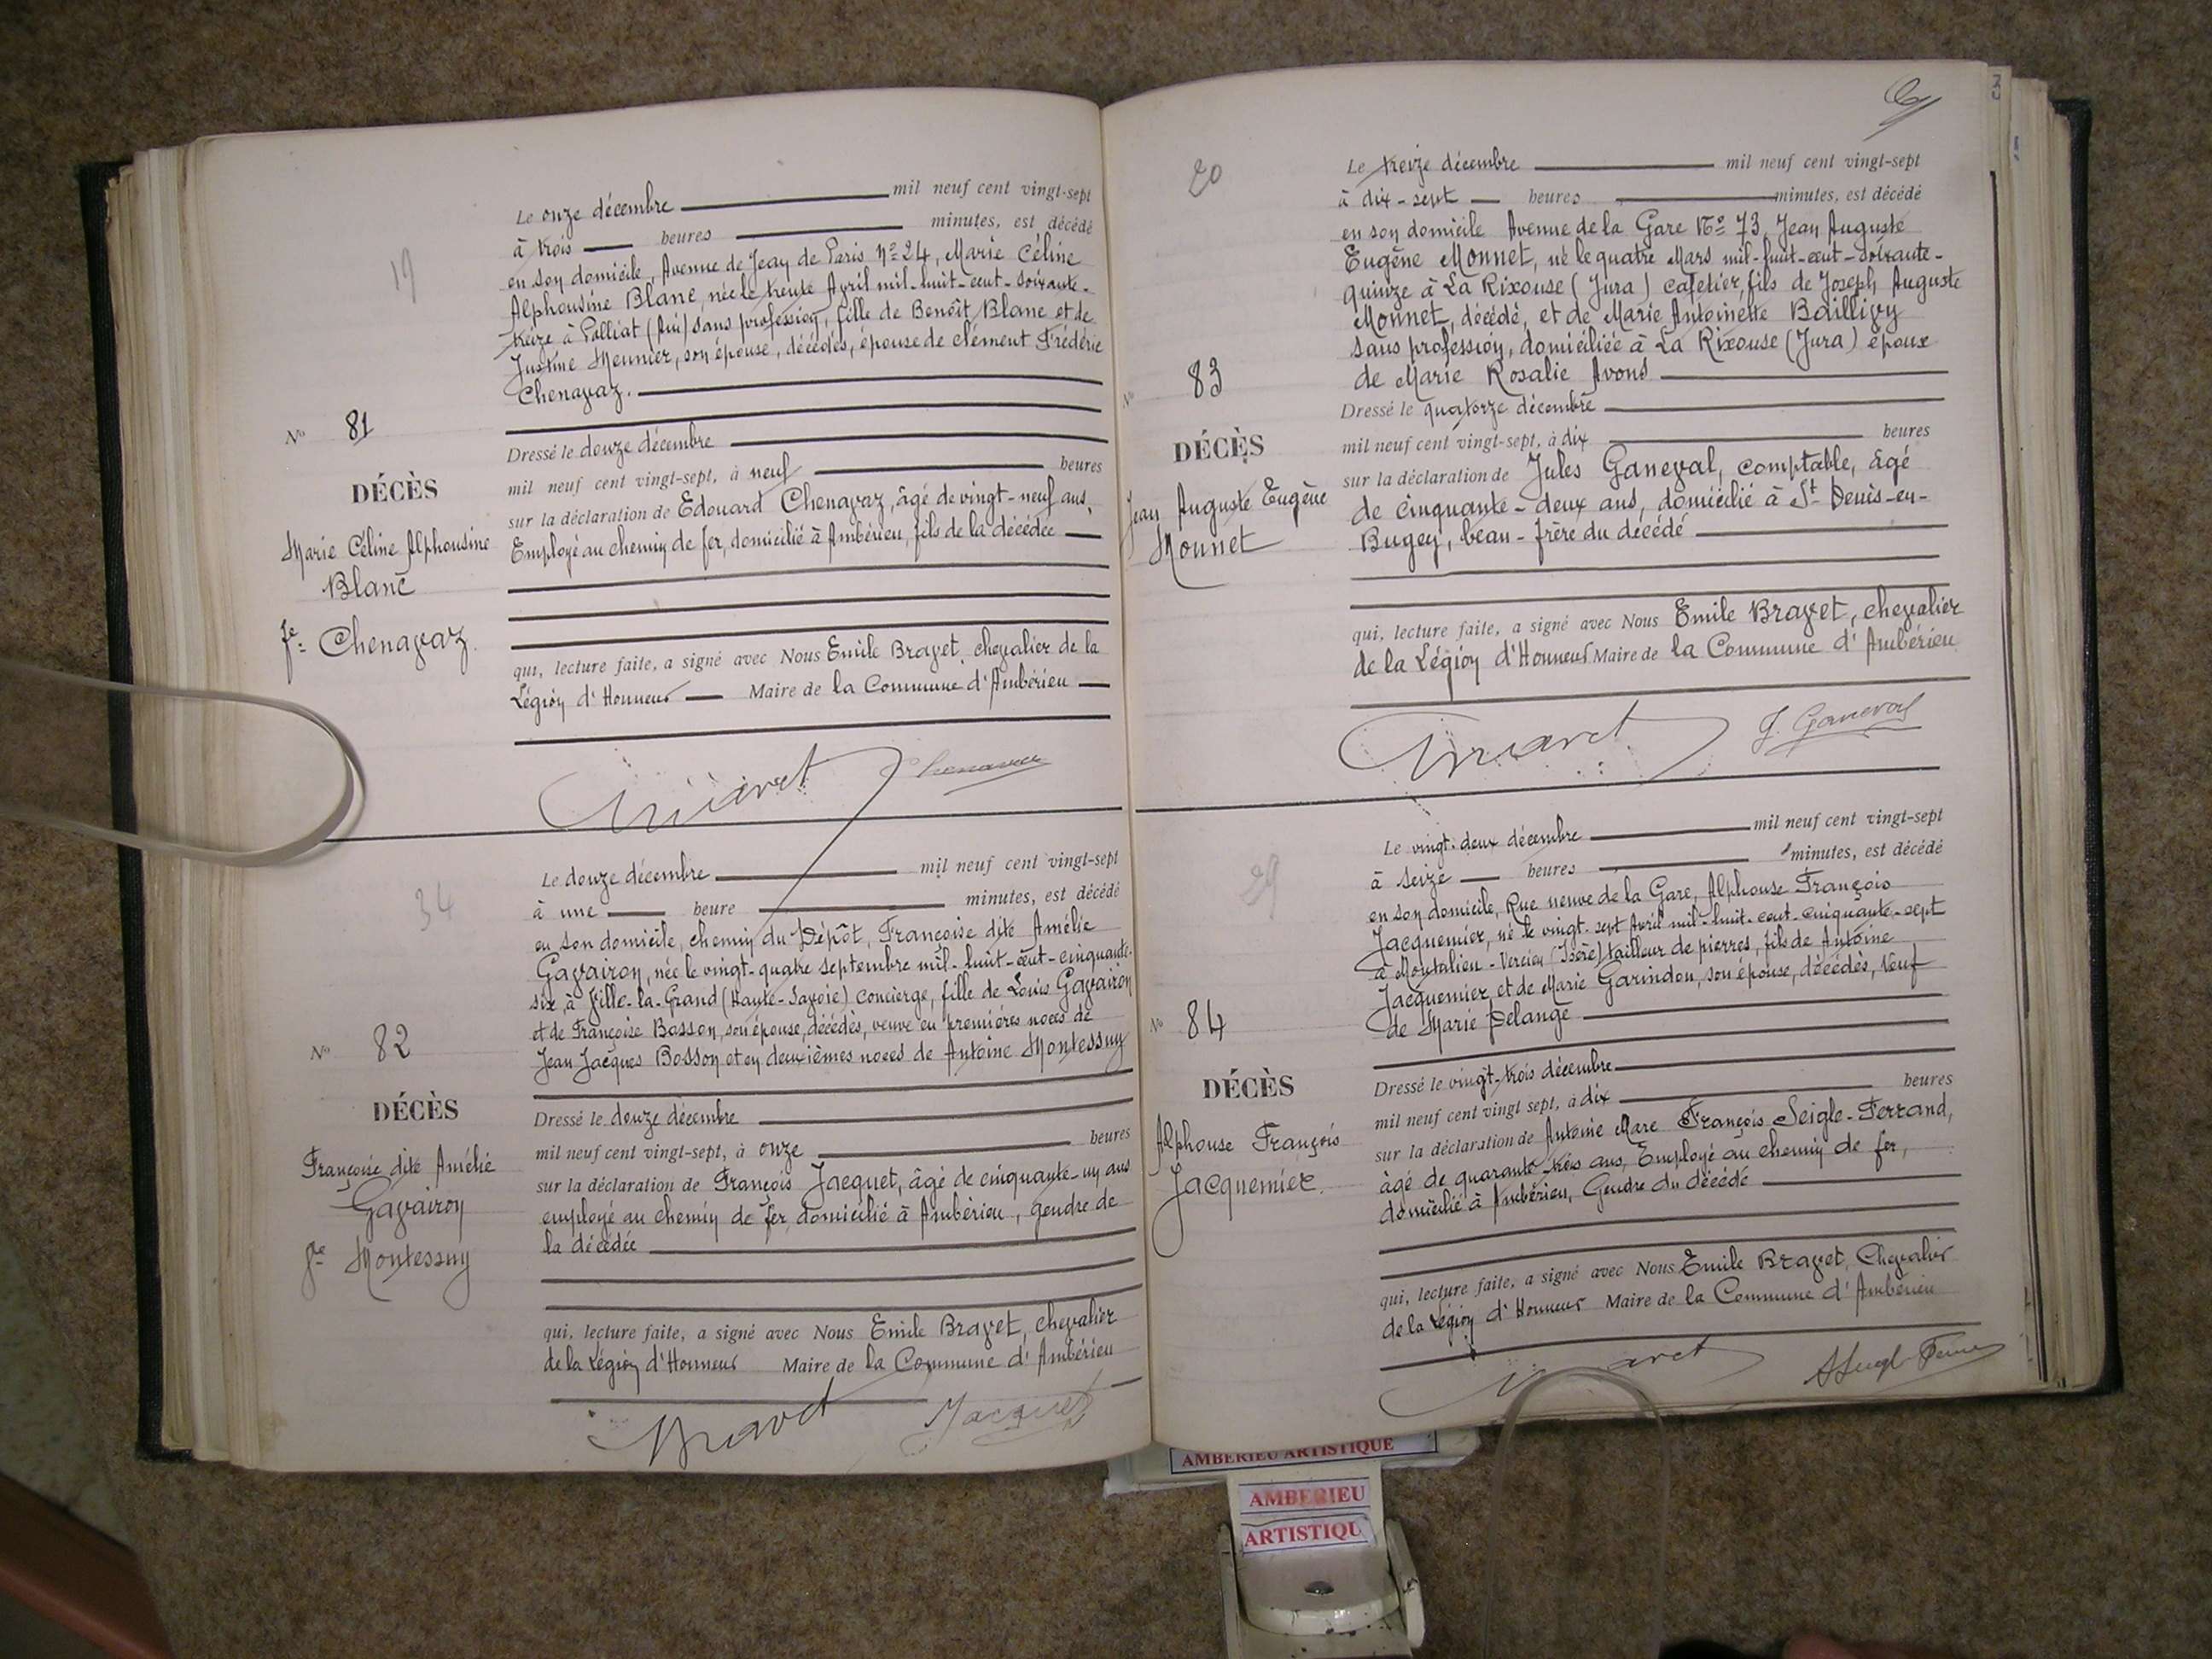 19
Le onze décembre mil neuf cent vingt-sept
à trois heures minutes, est décédé
en son domicile, Avenue de Jean de Paris Nº 24, Marie Céline
Alphonsine Blanc, née le trente Avril mil-huit-cent-soixante-
treize à Polliat (Ain) sans profession, fille de Benoît Blanc et de
Justine Meunier, son épouse, décédés, épouse de clément Frédéric
Chenavaz.
Nº 81
DÉCÈS
Marie Céline Alphonsine
Blanc
fe Chenavaz
Dressé le douze décembre
mil neuf cent vingt-sept, à neuf heures
sur la déclaration de Edouard Chenavaz, âgé de vingt-neuf ans,
Employé au chemin de fer, domicilié à Ambérieu, fils de la décédée
qui, lecture faite, a signé avec Nous Emile Bravet, chevalier de la
Légion d'Honneur Maire de la Commune d'Ambérieu
Bravet Chenavaz
34
Le douze décembre mil neuf cent vingt-sept
à une heure minutes, est décédé
en son domicile, chemin du Dépôt, Françoise dite Amélie
Gavairon, née le vingt-quatre septembre mil-huit-cent-cinquante-
six, à Ville-la-Grand (Haute-Savoie) concierge, fille de Louis Gavairon
et de Françoise Basson, son épouse, décédés, veuve en premières noces de
Jean Jacques Bosson et en deuxièmes noces de Antoine Montessuy
Nº 82
DÉCÈS
Françoise dite Amélie
Gavairon
Ve Montessuy
Dressé le douze décembre
mil neuf cent vingt-sept, à onze heures
sur la déclaration de François Jacquet, âgé de cinquante-un ans
employé au chemin de fer, domicilié à Ambérieu, gendre de
la décédée
qui, lecture faite, a signé avec Nous Emile Bravet, chevalier
de la Légion d'Honneur Maire de la Commune d'Ambérieu
Bravet Jacquet
20
Le treize décembre mil neuf cent vingt-sept
à dix-sept heures minutes, est décédé
en son domicile Avenue de la Gare Nº 73, Jean Auguste
Eugène Monnet, né le quatre Mars mil-huit-cent-soixante-
quinze à La Rixouse (Jura) cafetier, fils de Joseph Auguste
Monnet, décédé, et de Marie Antoinette Bailligy
sans profession, domiciliée à La Rixouse (Jura) époux
de Marie Rosalie Avons
Nº 83
DÉCÈS
Jean Auguste Eugène
Monnet
Dressé le quatorze décembre
mil neuf cent vingt-sept, à dix heures
sur la déclaration de Jules Ganeval, comptable, âgé
de cinquante-deux ans, domicilié à St Denis-en-
Bugey, beau-frère du décédé
qui, lecture faite, a signé avec Nous Emile Bravet, chevalier
de la Légion d'Honneur Maire de la Commune d'Ambérieu
Bravet J. Ganeval
29
Le vingt-deux décembre mil neuf cent vingt-sept
à seize heures minutes, est décédé
en son domicile, Rue neuve de la Gare, Alphonse François
Jacquemier, né le vingt-sept Avril mil-huit-cent-cinquante-sept
à Montalieu-Vercieu (Isère) tailleur de pierres, fils de Antoine
Jacquemier et de Marie Garindon, son épouse, décédés, Veuf
de Marie Delange
Nº 84
DÉCÈS
Alphonse François
Jacquemier
Dressé le vingt-trois décembre
mil neuf cent vingt sept, à dix heures
sur la déclaration de Antoine Marc François Seigle-Ferrand,
âgé de quarante-trois ans, Employé au chemin de fer,
domicilié à Ambérieu, Gendre du décédé
qui, lecture faite, a signé avec Nous Emile Bravet, Chevalier
de la Légion d'Honneur Maire de la Commune d'Ambérieu
AMBERIEU ARTISTIQUE
AMBERIEU
ARTISTIQU